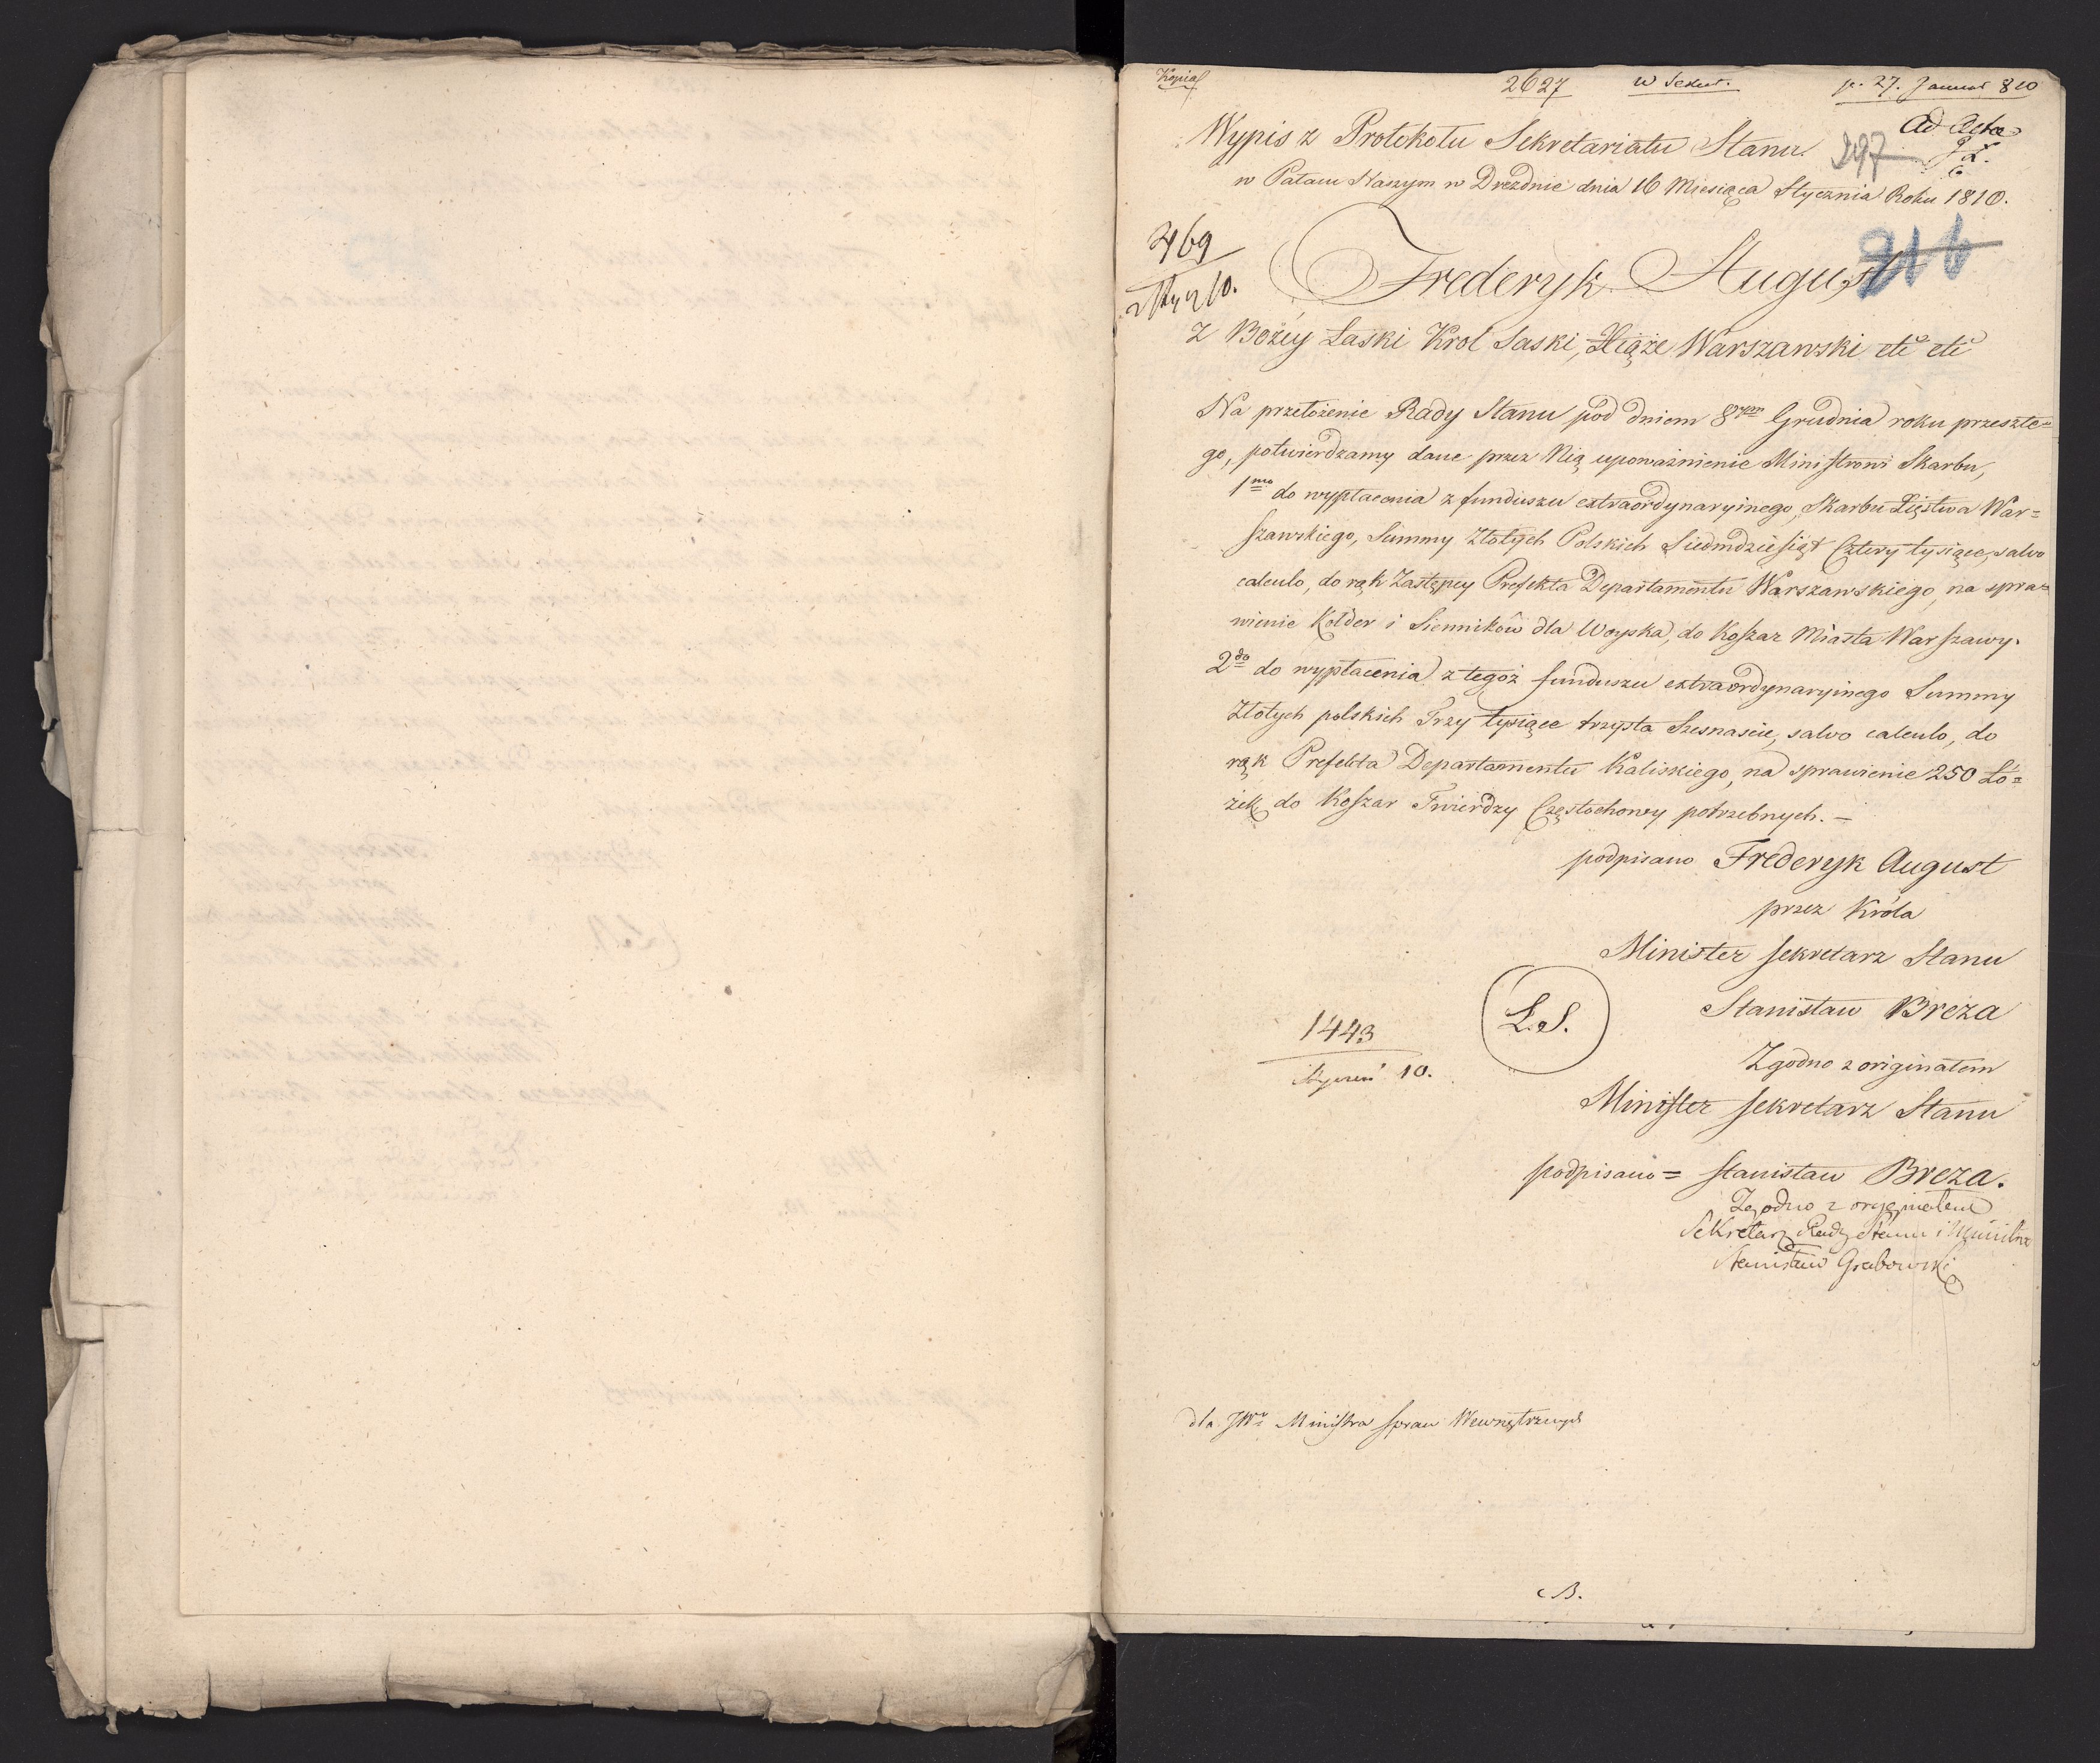 Kopia
2627 w Sekret. pr. 27. Januar 810
Ad Acta
Wypis z Protokołu Sekretariatu Stanu.
297
w Pałacu Naszym w Dreźdnie dnia 16 Miesiąca Stycznia Roku 1810.
469
216
Frederyk August
Z Bożey Łaski Krol Saski, Xiąże Warszawski etc etc
Na przełożenie Rady Stanu pod dniem 8ym Grudnia roku przeszłe=
go, potwierdzamy dane przez Nią upoważnienie Ministrowi Skarbu,
1mo do wypłacenia z funduszu extraordynaryinego, Skarbu Xięstwa War=
szawskiego, Summy Złotych Polskich Siedmdziesiąt Cztery tysiące, salvo
calculo, do rąk Zastępcy Prefekta Departamentu Warszawskiego, na spra=
wienie Kołder i Sienników dla Woyska, do Koszar Miasta Warszawy.
2do do wypłacenia z tegoż funduszu extraordynaryinego Summy
Złotych polskich Trzy tysiące trzysta Szesnaście, salvo calculo, do
rąk Prefekta Departamentu Kaliskiego, na sprawienie 250 Łó=
żek do Koszar Twierdzy Częstochowy potrzebnych. —
podpisano Frederyk August
przez Króla
Minister Sekretarz Stanu
L.S.
Stanisław Breza
1443
Styczeń 10.
Zgodno z originałem
Minister Sekretarz Stanu
podpisano = Stanisław Breza.
Zgodno z oryginałem
Sekretarz Rady Stanu i Ministrów
Stanisław Grabowski
dla JWo Ministra Spraw Wewnętrznych
B.